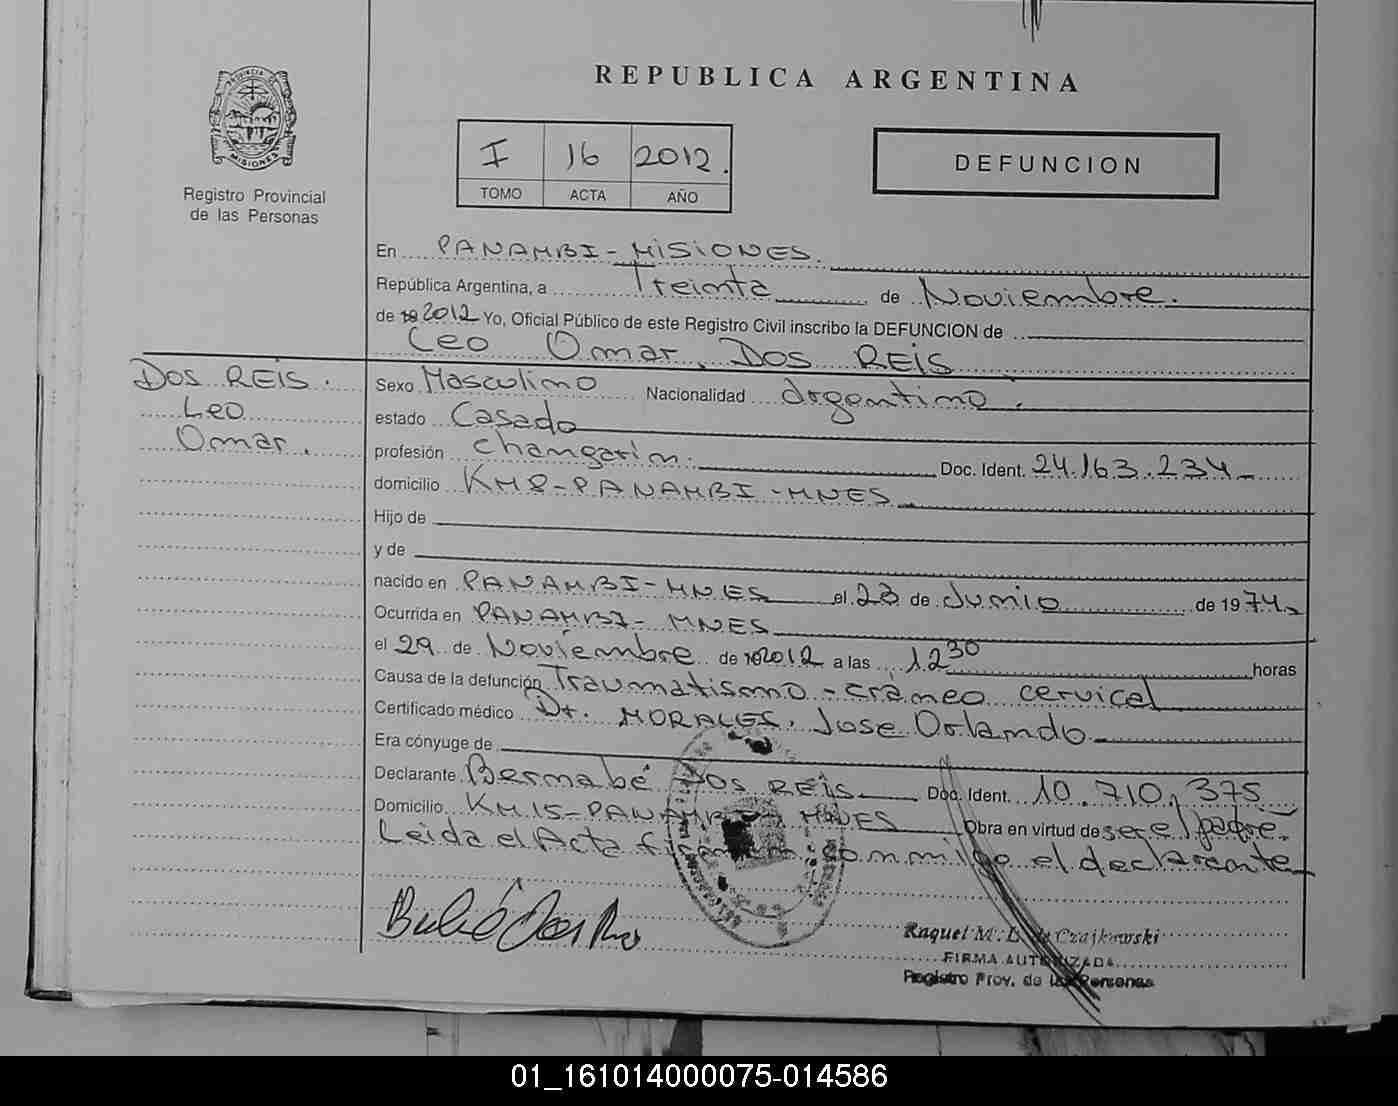 REPUBLICA ARGENTINA
PROVINCIA DE
MISIONES
Registro Provincial
de las Personas
I 16 2012.
TOMO ACTA AÑO
DEFUNCION
En PANAMBI - MISIONES.
República Argentina, a Treinta de Noviembre.
de 2012 Yo, Oficial Público de este Registro Civil inscribo la DEFUNCION de
Leo Omar DOS REIS
DOS REIS.
Leo
Omar.
Sexo Masculino Nacionalidad Argentino.
estado Casado
profesión changarin. Doc. Ident. 24.163.234-
domicilio KM8-PANAMBI-MNES
Hijo de
y de
nacido en PANAMBI-MNES el 23 de Junio de 1974
Ocurrida en PANAMBI- MNES
el 29 de Noviembre de 2012 a las 12 30 horas
Causa de la defunción Traumatismo - cráneo cervical
Certificado médico Dr. MORALES, Jose Orlando
Era cónyuge de
Declarante Bernabé DOS REIS Doc. Ident. 10.710.375
Domicilio KM15-PANAMBI-MNES Obra en virtud de ser el padre.
Leida el Acta firman conmigo el declarante
Raquel M. L. de Czajkowski
FIRMA AUTORIZADA
Registro Prov. de las Personas
01_161014000075-014586